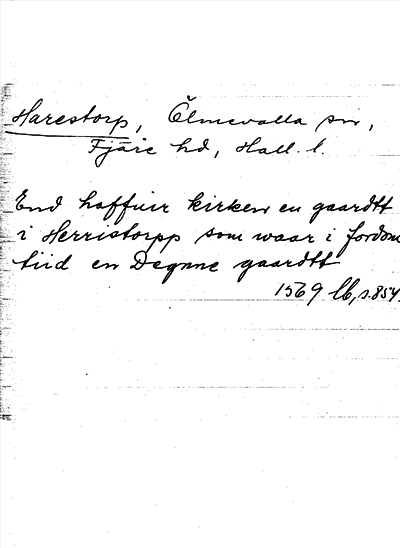 Harestorp, Ölmevalla sn,
Fjäre hd, Hall. l.
End haffuer kirken en gaardtt
i Herristorpp som waar i fordom
tiid en Degnne gaardtt
1569 lb, s. 854.